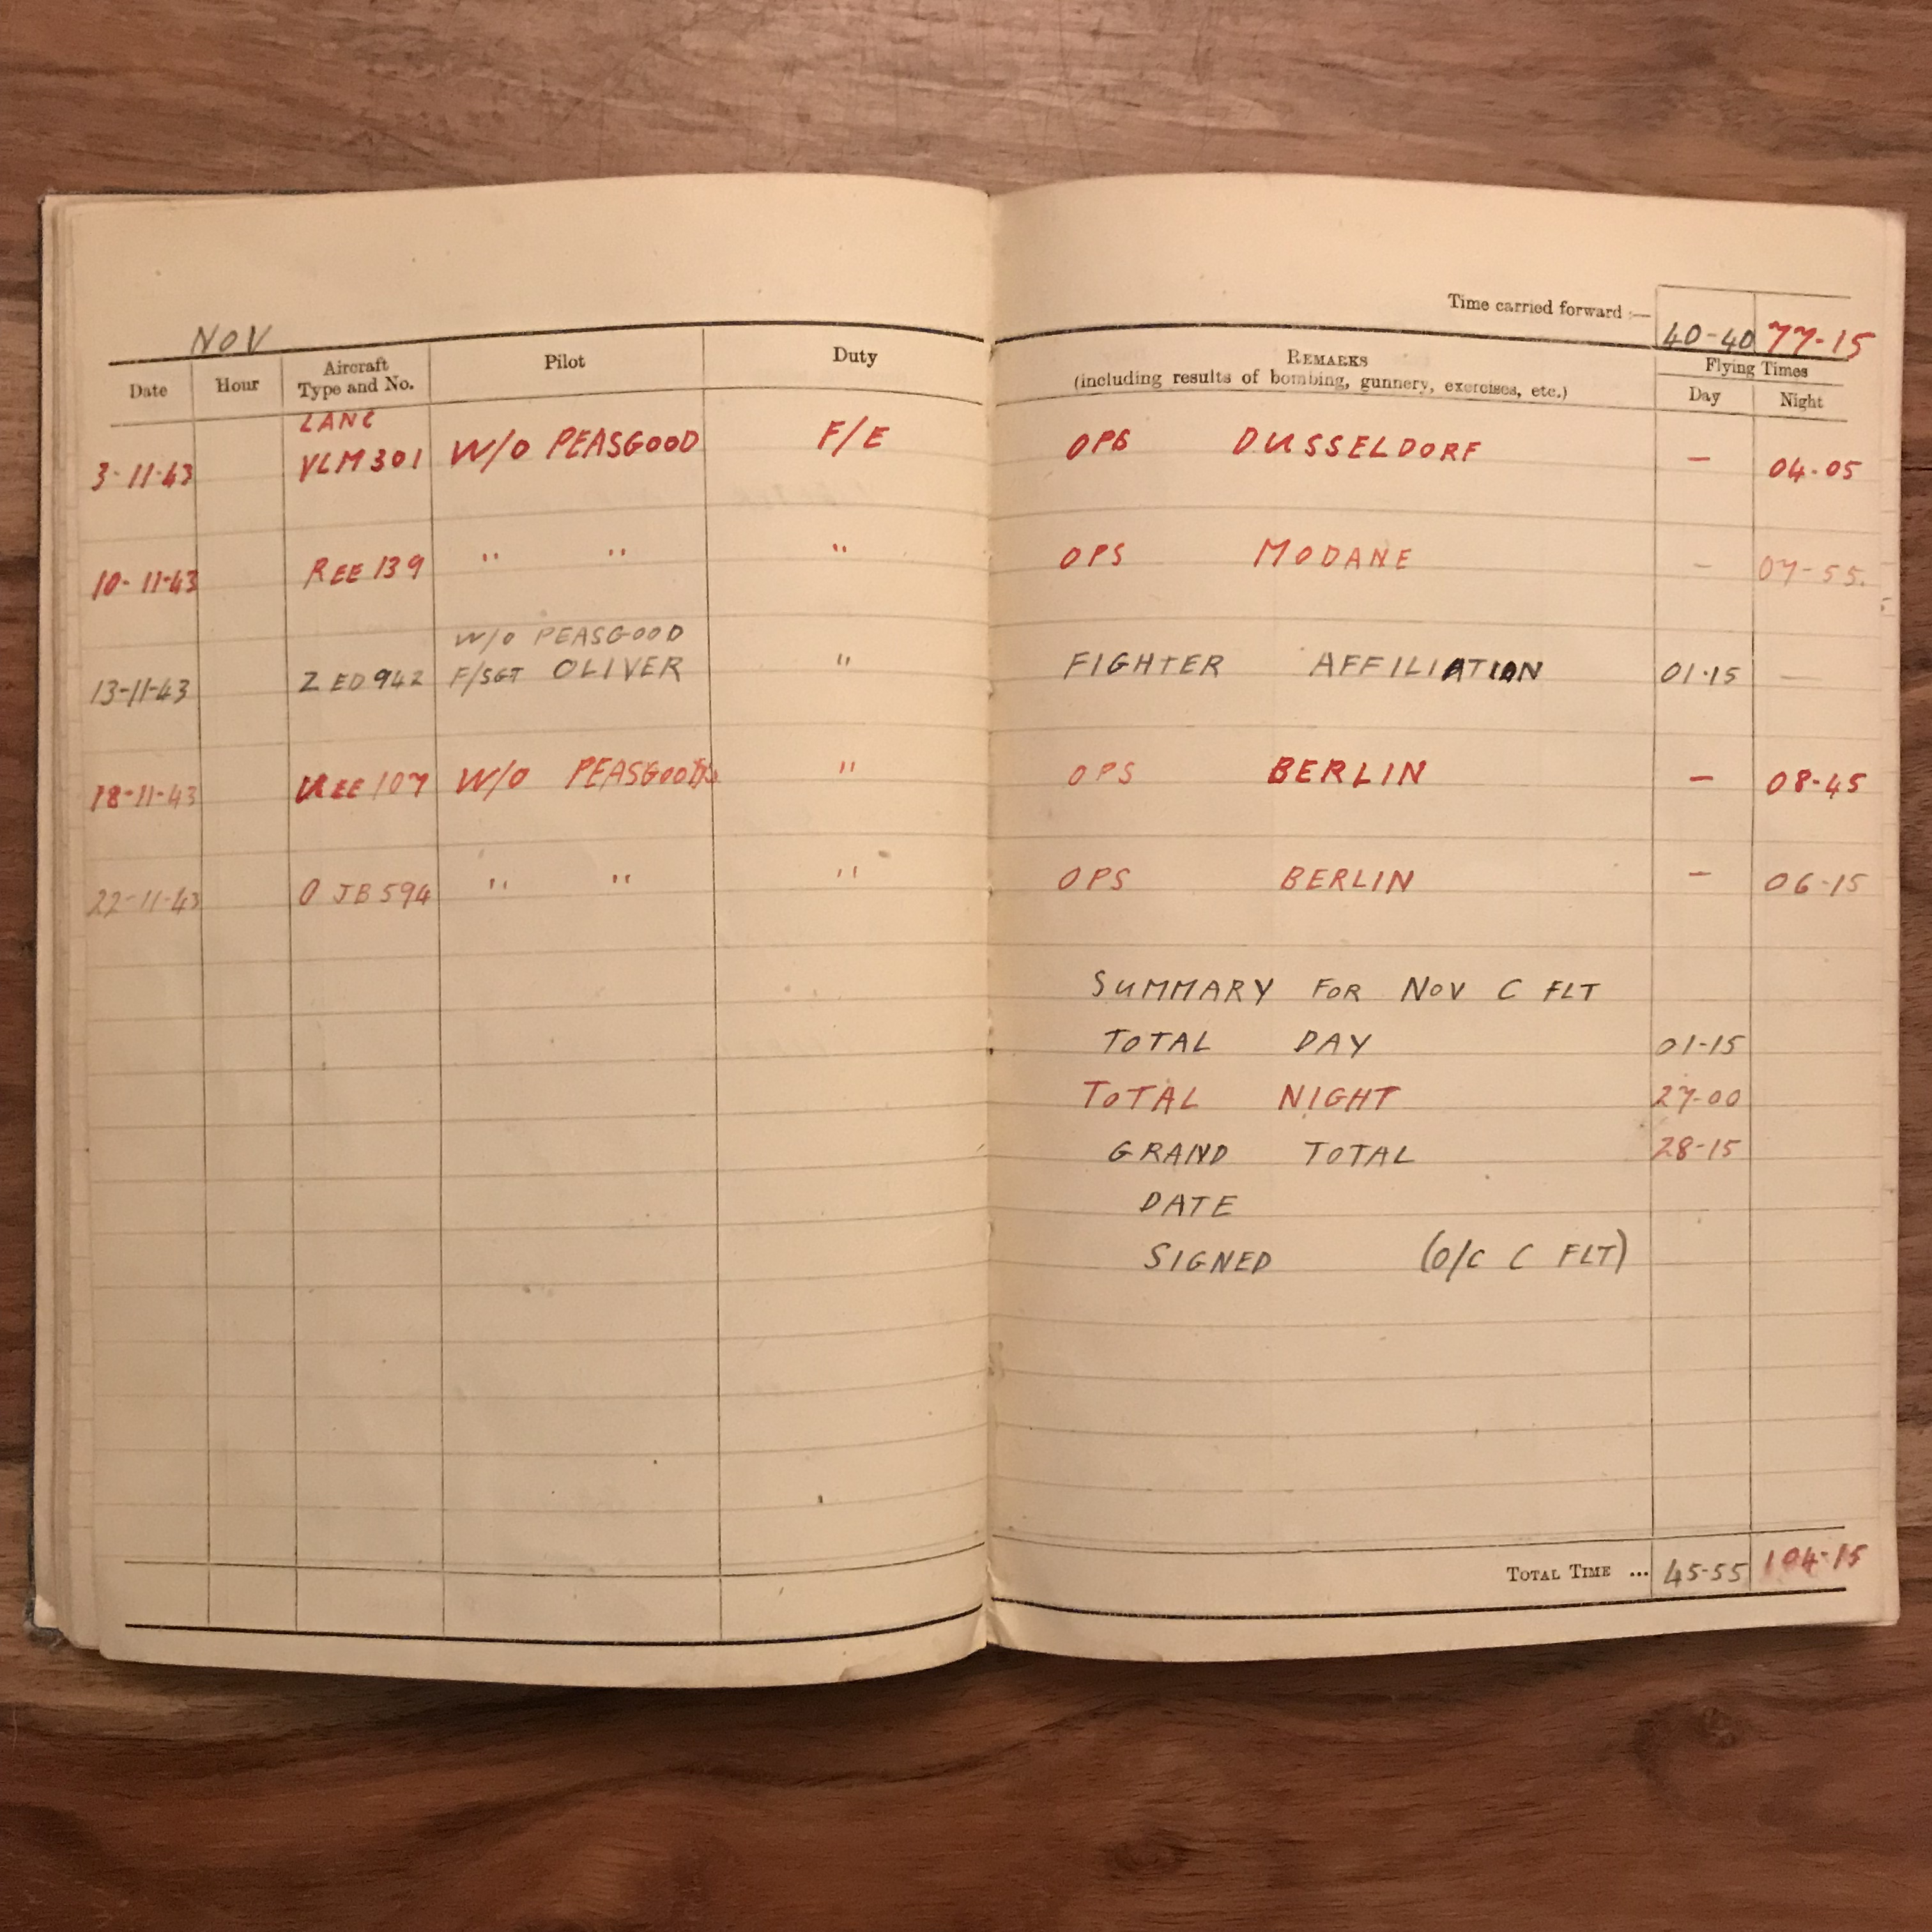 NOV
Time carried forward :— 40-40 77-15
Date Hour Aircraft Type and No. Pilot Duty REMARKS (including results of bombing, gunnery, exercises, etc.) Flying Times Day Night
LANC
3-11-43 V LM301 W/O PEASGOOD F/E OPS DUSSELDORF — 04.05
10-11-43 R EE139 " " " OPS MODANE — 07-55.
W/O PEASGOOD
13-11-43 Z ED942 F/SGT OLIVER " FIGHTER AFFILIATION 01.15 —
18-11-43 U EE107 W/O PEASGOOD " OPS BERLIN — 08-45
22-11-43 O JB594 " " " OPS BERLIN — 06-15
SUMMARY FOR NOV C FLT
TOTAL DAY 01-15
TOTAL NIGHT 27-00
GRAND TOTAL 28-15
DATE
SIGNED (O/C C FLT)
TOTAL TIME ... 45-55 104-15